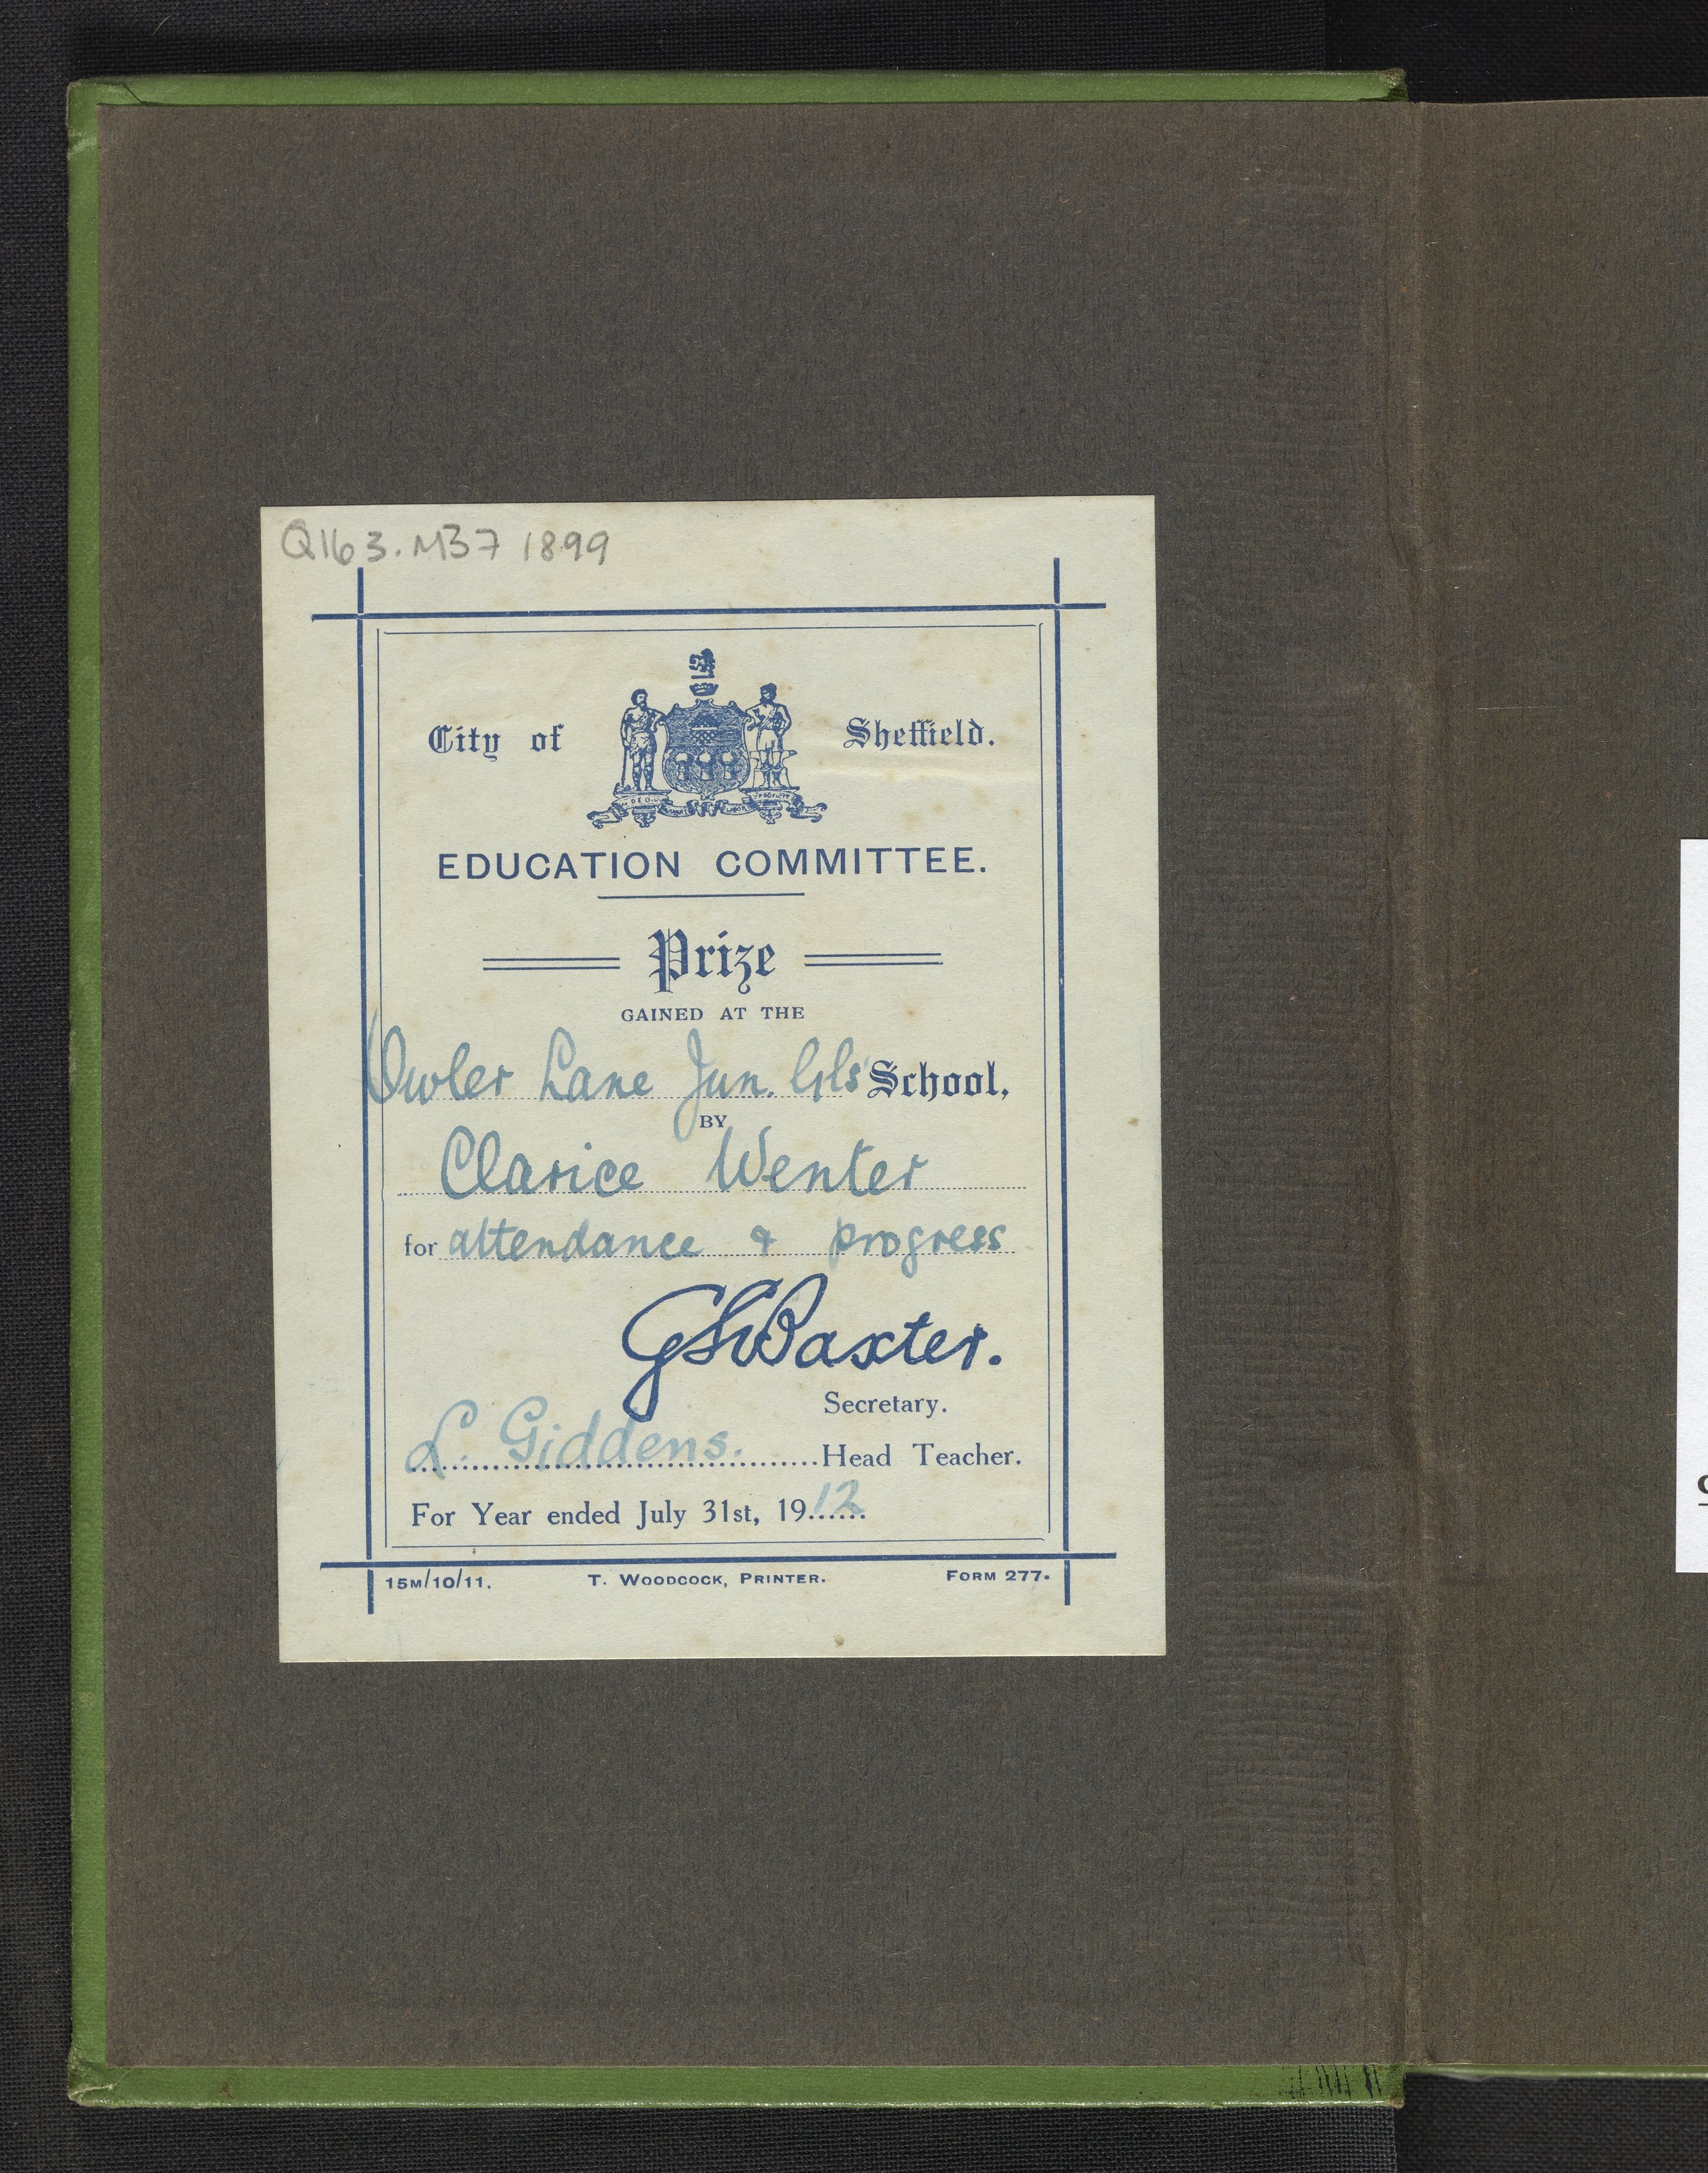 Q163.M37 1899
City of Sheffield.
EDUCATION COMMITTEE.
Prize
GAINED AT THE
Owler Lane Jun. Gls' School,
BY
Clarice Wenter
for attendance & progress
GSBaxter.
Secretary.
L. Giddens. Head Teacher.
For Year ended July 31st, 1912
15M/10/11. T. WOODCOCK, PRINTER. FORM 277.